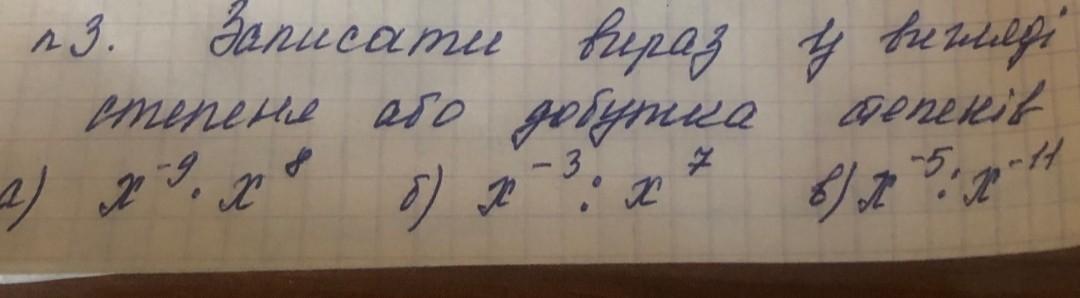 n3. Записати вираз у вигляді
степеня або добутка степенів
а) x⁻⁹ · x⁸ б) x⁻³ : x⁷ в) x⁻⁵ : x⁻¹¹